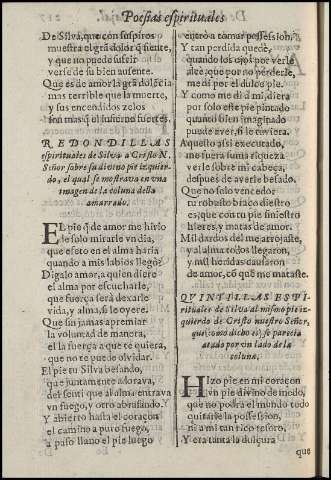 Poesias espirituales
De Silva, que con suspiros
muestra el grā dolor q̄ siente,
y que no puede sufrir
verse de su bien ausente.
Que es de amor la grā dolēcia
mas terrible que la muerte,
y sus encendidos zelos
son mas q̄ el infierno fuertes.
REDONDILLAS
espirituales de Silva a Cristo N.
Señor sobre su divino pie izquier-
do, el qual se mostrava en vna
imagen de la coluna della
amarrado.
EL pie q̄ de amor me hirio
le solo mirarle vn dia,
que esto en el alma haria
quando a mis labios llegò?
Digalo amor, a quien diere
el alma por escucharle,
que fuerça serà dexarle
vida, y alma, si le oyere.
Que sin jamas apremiar
la voluntad de manera,
el la fuerça a que te quiera,
que no te puede olvidar.
El pie tu Silva besando,
que juntamente adorava,
del senti que al alma entrava
vn fuego, y otro abrasando.
Y abierto hasta el coraçon
el camino a puro fuego,
a passo llano el pie luego
entrò a tomar possession.
Y tan perdida quedè,
quando los ojos por verle
alcè, que por no perderle,
medì por el dulce pie.
Y como me di a mi, diera
por solo este pie pintado
quanto bien imaginado
puede aver, si lo tuviera.
Aquesto assi executado,
me fuera suma riqueza
verle sobre mi cabeça,
despues de averle besado.
Que no solo vencedor
tu robusto braço diestro
es; que con tu pie siniestro
hieres, y matas de amor.
Mil dardos del me arrojaste,
y al alma todos llegaron,
y mil heridas causaron
de amor, cō què me mataste.
QUINTILLAS ESPI-
rituales de Silva al mismo pie iz-
quierdo de Cristo nuestro Señor,
que como dicho es, se parecia
atado por vn lado de la
coluna.
HIzo pie en mi coraçon
vn pie divino de modo,
que no podrà el mundo todo
quitarle la possession,
ni a mi tan rico tesoro.
Y era tanta la dulçura
que